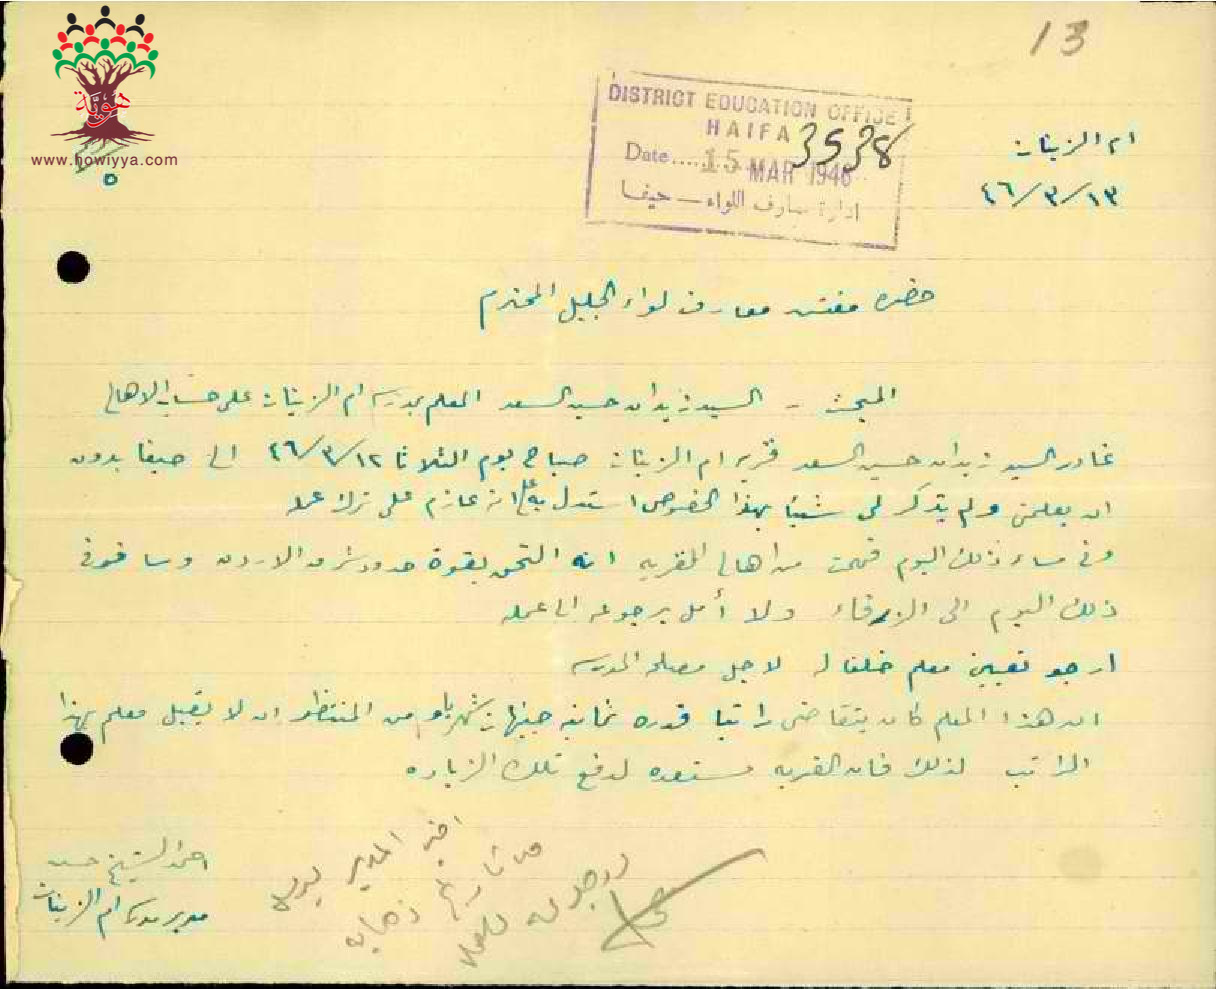 13
هوية
www.howiyya.com
DISTRICT EDUCATION OFFICE
HAIFA
3538
Date..... 15 MAR 1946
ادارة معارف اللواء — حيفا
ام الزينات
٤٦/٣/١٣
حضرة مفتش معارف لواء الجليل المحترم
المبحث - السيد زيدان حسين السعد المعلم بمدرسة ام الزينات على حساب الاهالي
غادر السيد زيدان حسين السعد قرية ام الزينات صباح يوم الثلاثا ٤٦/٣/١٢ الى حيفا بدون
ان يعلمني ولم يذكر لي شيئا بهذا الخصوص استدل به على انه عازم على ترك عمله
وفي مساء ذلك اليوم فهمت من اهالي القرية انه التحق بقوة حدود شرق الاردن وسافر في
ذلك اليوم الى الزرقاء ولا أمل برجوعه الى عمله
ارجو تعيين معلم خلفا له لاجل مصلحة المدرسة
ان هذا المعلم كان يتقاضى راتبا قدره ثمانية جنيهات شهريا و من المنتظر ان لا يقبل معلم بهذا
الراتب لذلك فان القرية مستعدة لدفع تلك الزيادة
احمد الشيخ حسن
مدير مدرسة ام الزينات
المدير
تاريخ ذهابه